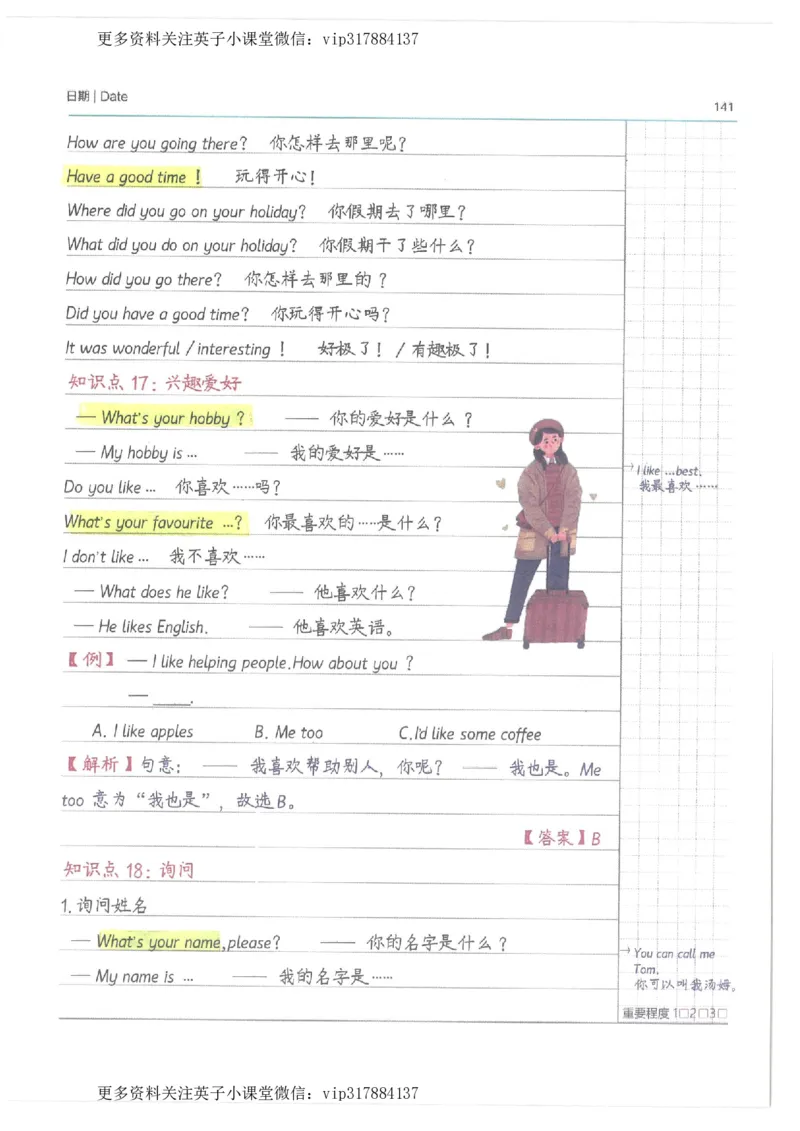 更多资料关注英子小课堂微信：vip317884137
日期 | Date
141
How are you going there? 你怎样去那里呢?
Have a good time ! 玩得开心!
Where did you go on your holiday? 你假期去了哪里?
What did you do on your holiday? 你假期干了些什么?
How did you go there? 你怎样去那里的 ?
Did you have a good time? 你玩得开心吗?
It was wonderful / interesting ! 好极了! / 有趣极了!
知识点 17: 兴趣爱好
— What's your hobby ? —— 你的爱好是什么 ?
— My hobby is … —— 我的爱好是……
→ I like …best.
我最喜欢……
Do you like … 你喜欢……吗?
What's your favourite …? 你最喜欢的……是什么?
I don't like … 我不喜欢……
— What does he like? —— 他喜欢什么?
— He likes English. —— 他喜欢英语。
【例】 — I like helping people.How about you ?
— ____.
A. I like apples B. Me too C.I'd like some coffee
【解析】句意: —— 我喜欢帮助别人, 你呢? —— 我也是。Me
too 意为“我也是”, 故选B。
【答案】B
知识点 18: 询问
1. 询问姓名
— What's your name,please? —— 你的名字是什么 ?
— My name is … —— 我的名字是……
→ You can call me
Tom.
你可以叫我汤姆。
重要程度 1□2□3□
更多资料关注英子小课堂微信：vip317884137